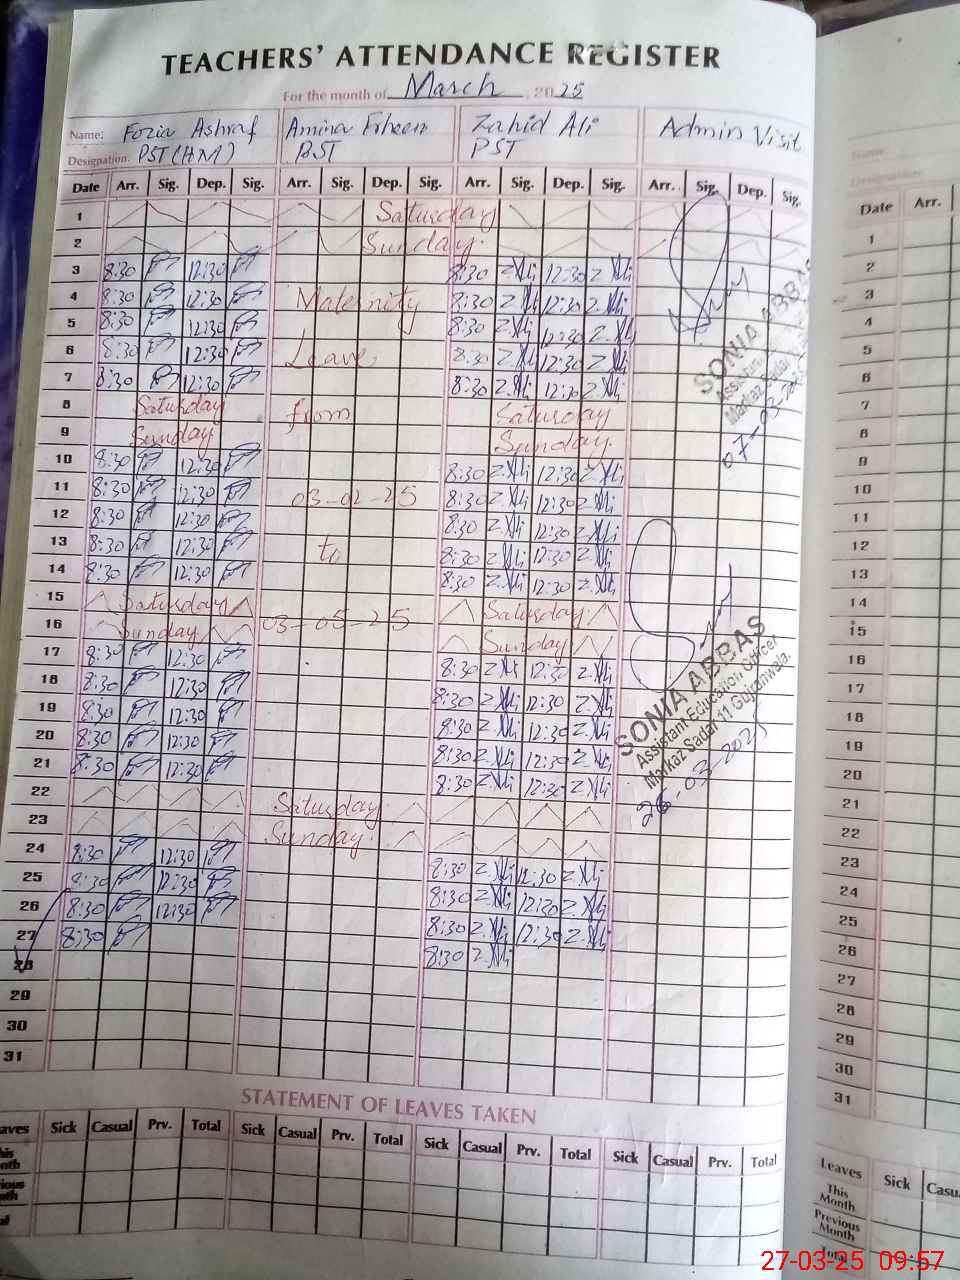 TEACHERS' ATTENDANCE REGISTER
For the month of March, 2025
Name: Fozia Ashraf Amina Zahid Ali Admin Visit
Designation. PST (HM) PST
Date Arr. Sig. Dep. Sig. Arr. Sig. Dep. Sig. Arr. Sig. Dep. Sig. Arr. Sig. Dep. Sig.
1 Saturday
2 Sunday
3 8:30 12:30 8:30 Z.Ali 12:30 Z.Ali
4 8:30 12:30 Maternity 8:30 Z.Ali 12:30 Z.Ali
5 8:30 12:30 8:30 Z.Ali 12:30 Z.Ali
6 8:30 12:30 Leave, 8:30 Z.Ali 12:30 Z.Ali
7 8:30 12:30 8:30 Z.Ali 12:30 Z.Ali
8 Saturday from Saturday
9 Sunday Sunday
10 8:30 12:30 8:30 Z.Ali 12:30 Z.Ali
11 8:30 12:30 03-02-25 8:30 Z.Ali 12:30 Z.Ali
12 8:30 12:30 8:30 Z.Ali 12:30 Z.Ali
13 8:30 12:30 to 8:30 Z.Ali 12:30 Z.Ali
14 8:30 12:30 8:30 Z.Ali 12:30 Z.Ali
15 Saturday Saturday
16 Sunday 03-05-25 Sunday
17 8:30 12:30 8:30 Z.Ali 12:30 Z.Ali
18 8:30 12:30 8:30 Z.Ali 12:30 Z.Ali
19 8:30 12:30 8:30 Z.Ali 12:30 Z.Ali
20 8:30 12:30 8:30 Z.Ali 12:30 Z.Ali
21 8:30 12:30 8:30 Z.Ali 12:30 Z.Ali
22 Saturday
23 Sunday
24 8:30 12:30 8:30 Z.Ali 12:30 Z.Ali
25 8:30 12:30 8:30 Z.Ali 12:30 Z.Ali
26 8:30 12:30 8:30 Z.Ali 12:30 Z.Ali
27 8:30 8:30 Z.Ali
28
29
30
31
SONIA ABBAS
Assistant
Markaz Sadar
07-03-202
SONIA ABBAS
Assistant Education Officer
Markaz Sadar 11 Gujranwala.
26-03-2025
STATEMENT OF LEAVES TAKEN
aves Sick Casual Prv. Total Sick Casual Prv. Total Sick Casual Prv. Total Sick Casual Prv. Total
his
nth
ious
nth
al
Date Arr.
1
2
3
4
5
6
7
8
9
10
11
12
13
14
15
16
17
18
19
20
21
22
23
24
25
26
27
28
29
30
31
Leaves Sick Casu
This
Month
Previous
Month
Total
27-03-25 09:57